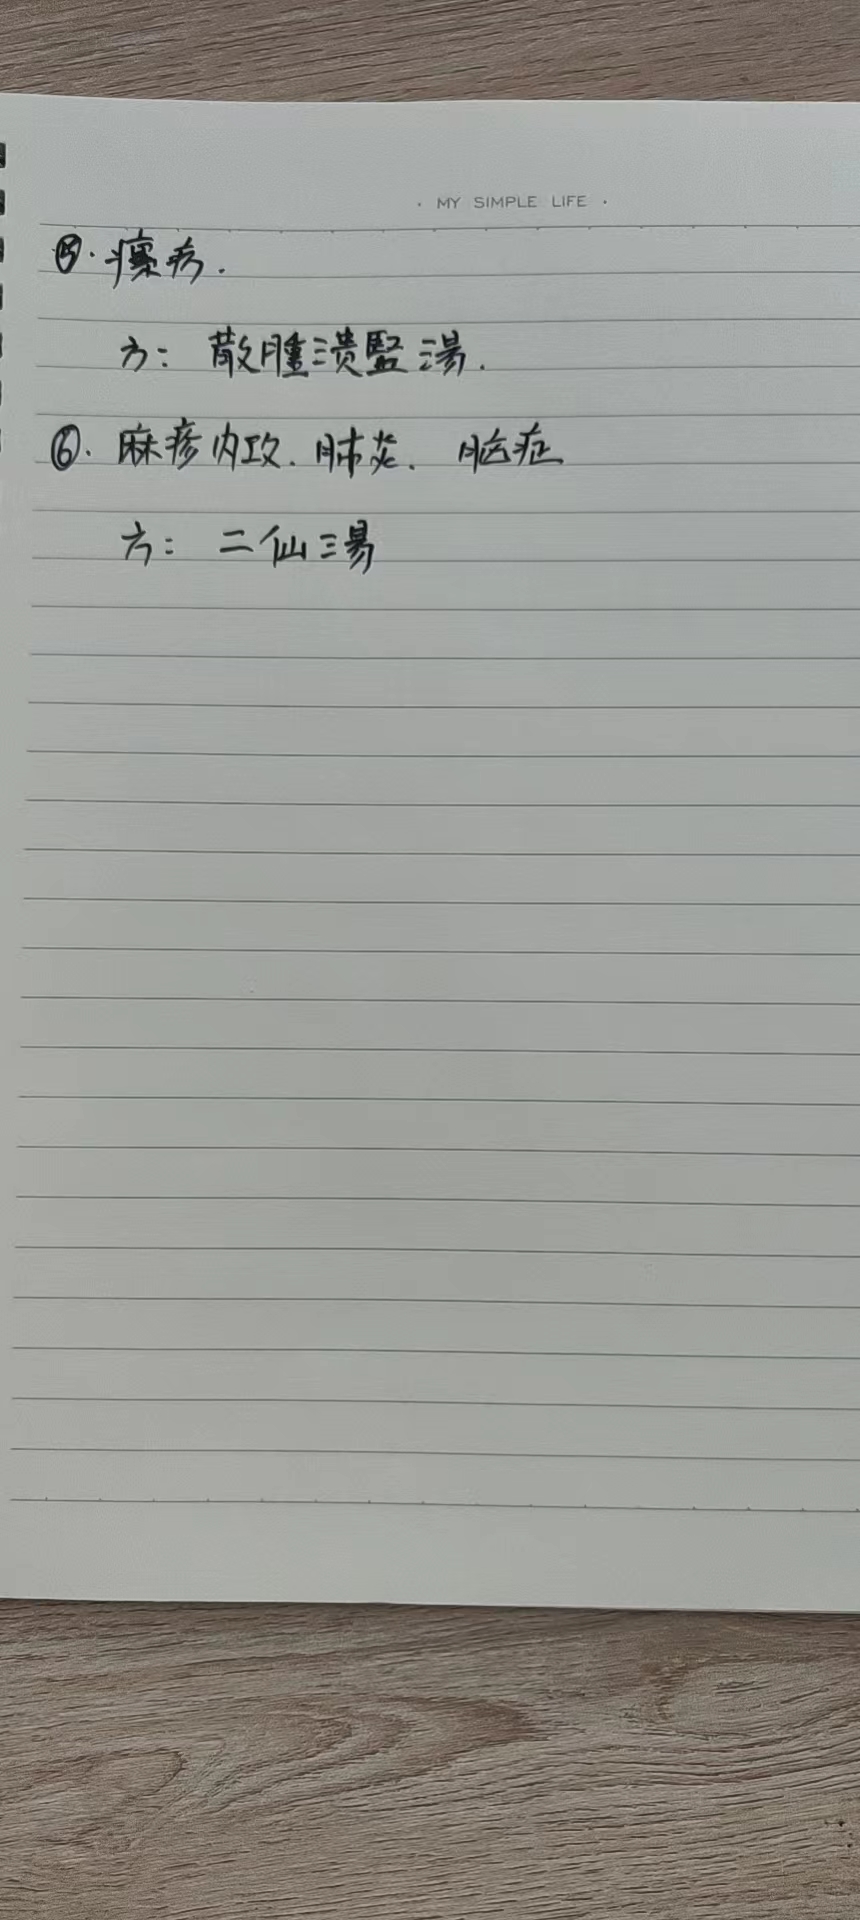 · MY SIMPLE LIFE ·
⑤. 瘰疬.
方: 散腫溃堅湯.
⑥. 麻疹内攻. 肺炎. 脑症
方: 二仙湯